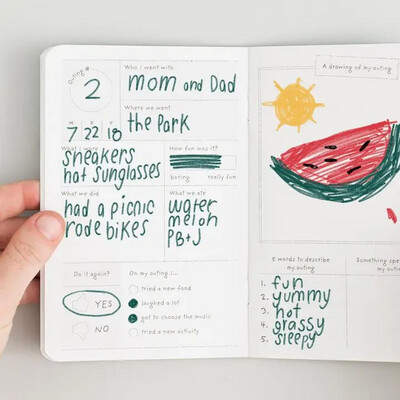 Outing #
2
Who I went with
mom and Dad
Where we went
the Park
M D Y
7 22 18
What I wore
sneakers
hat sunglasses
How fun was it?
boring really fun
What we did
had a picnic
rode bikes
What we ate
water
melon
PB+J
Do it again?
YES
NO
On my outing I...
tried a new food
laughed a lot
got to choose the music
tried a new activity
A drawing of my outing
5 words to describe
my outing
1. fun
2. yummy
3. hot
4. grassy
5. sleepy
Something
my outing